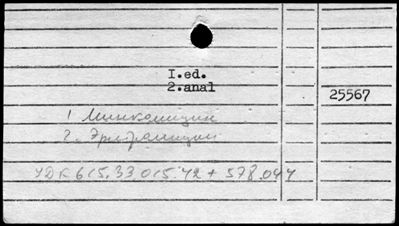 I.ed.
2.anal
25567
1 Линкомицин
2. Эритромицин
УДК 615.33 015.42 + 578.044